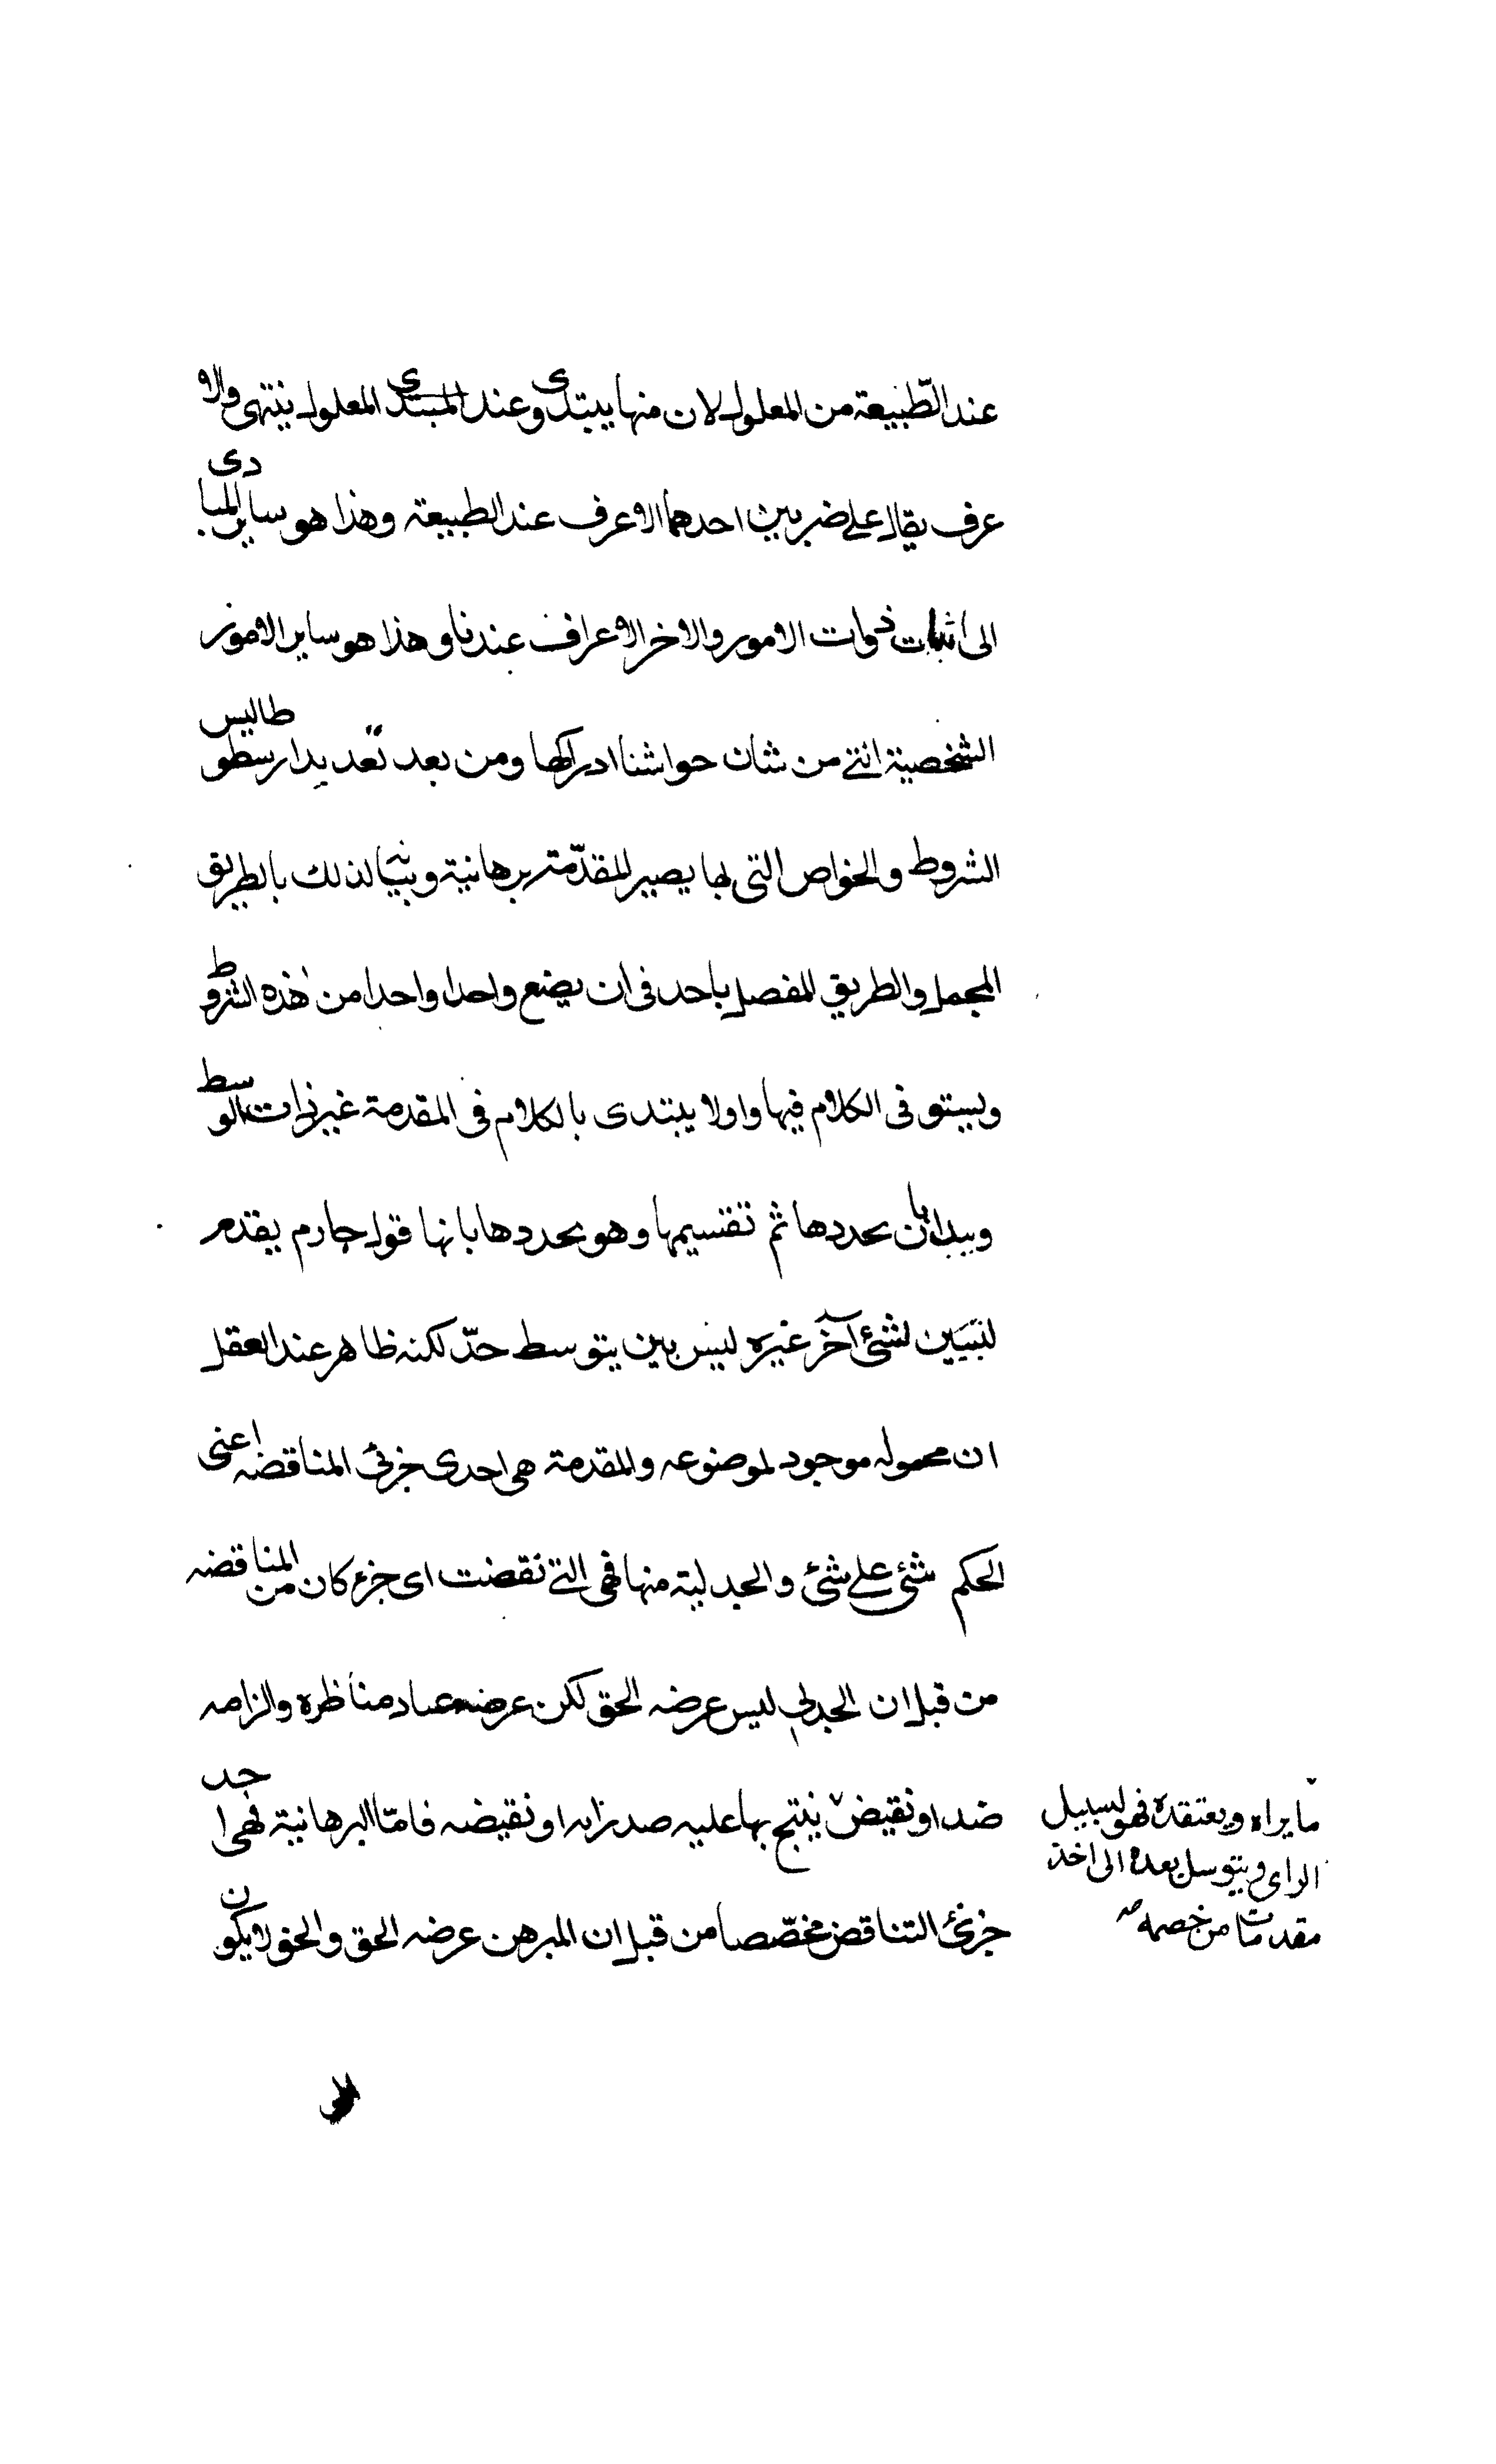 عند الطّبيعة من المعلول لان منها يبتدى وعند المبتدى المعلول ينتهى والا
عرف يقال على ضربين احدهما الاعرف عند الطبيعة وهذا هو ساير المبادى
الى اثبات ذوات الامور والاخر الاعراف عندنا وهذا هو ساير الامور
الشخصية التى من شان حواسنا ادراكها ومن بعد تعديد ارسطوطاليس
الشروط والخواص التى بها يصير المقدّمة برهانية وبنيانه لذلك بالطريق
المجمل والطريق المفصل ياخذ فى ان يضع واحدا واحدا من هذه الشروط
ويستوفى الكلام فيها واولا يبتدى بالكلام فى المقدمة غير ذات الوسط
ويبدا بان يحددها ثم تقسيمها وهو يحددها بانها قول جازم يقدم
لتبيين لشئ آخر غيره ليس بين يتوسط حدّ لكنه ظاهر عند العقل
ان محموله موجود لموضوعه والمقدمة هى احدى جزئى المناقضه اعنى
الحكم شئ على شئ والجدلية منها فهى التى نقضت اى جزء كان من المناقضه
من قبل ان الجدلى ليس عرضه الحق لكن عرضه عناد مناظره والزامه
ضد او نقيض ينتج بها عليه ضد رايه او نقيضه فامّا البرهانية فهى احد
جزئى التناقض مخصّصا من قبل ان المبرهن عرضه الحق والحق لا يكون
ما يراه ويعتقده فهو لسبيل
الراى ويتوسل بعده الى اخذ
مقدمات من خصمه صه